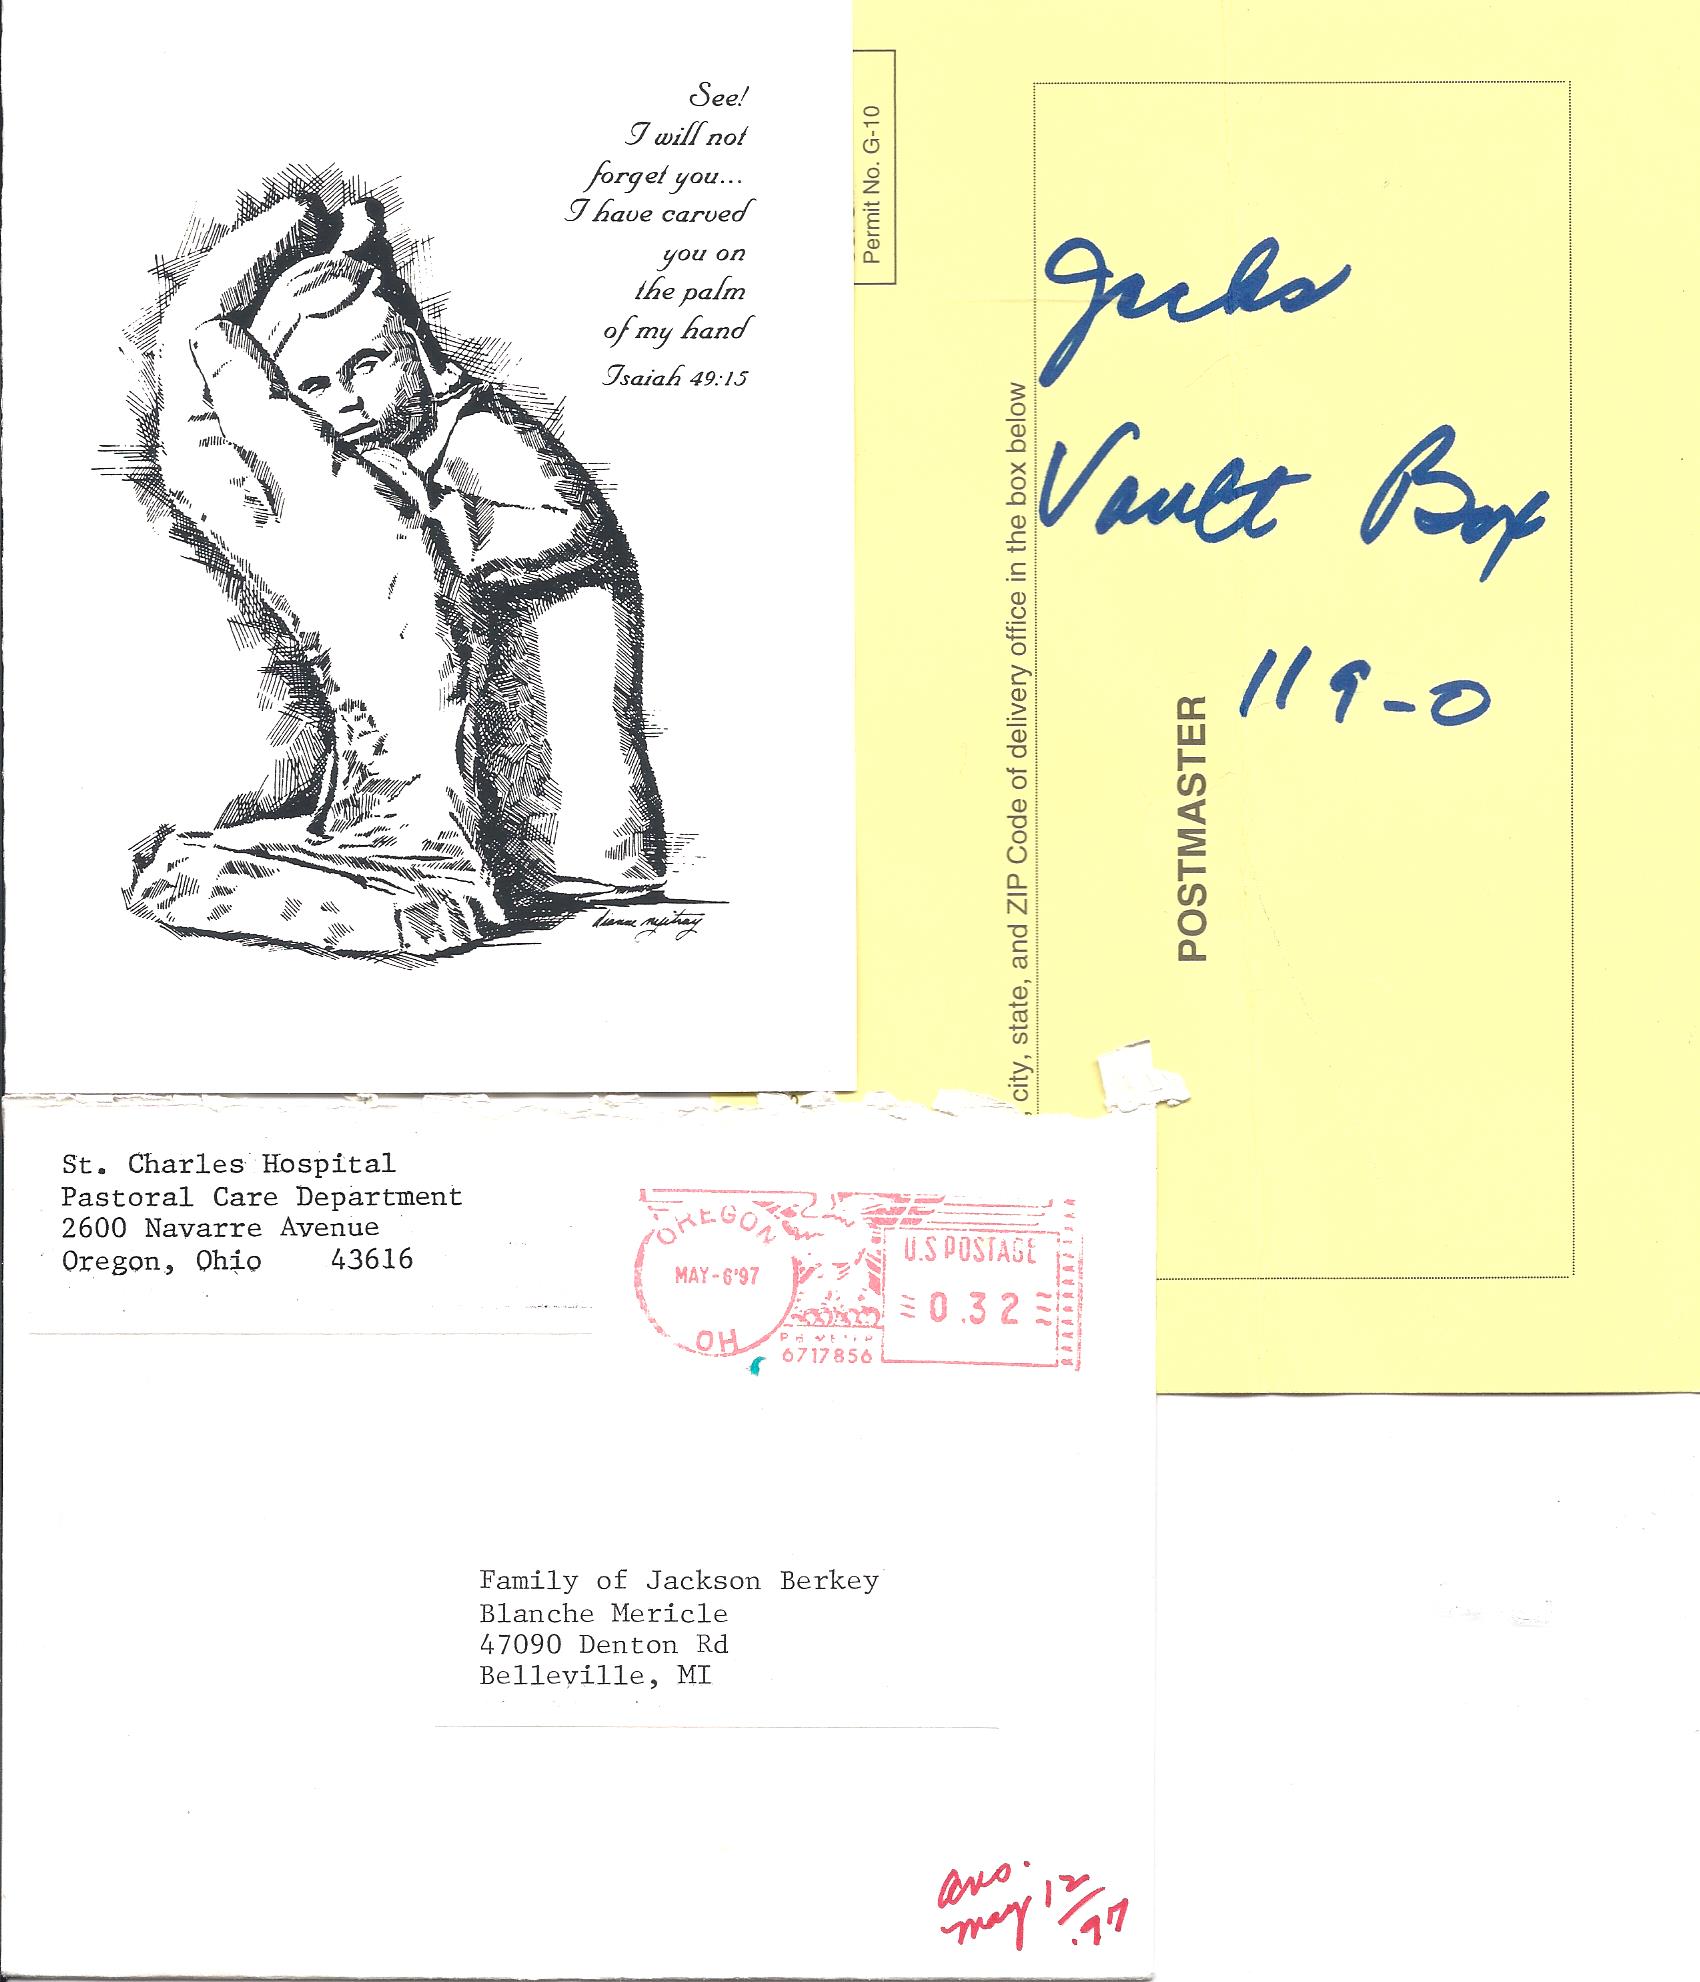 See!
I will not
forget you...
I have carved
you on
the palm
of my hand
Isaiah 49:15
Permit No. G-10
, city, state, and ZIP Code of delivery office in the box below
Jacks
Vault Box
119-0
POSTMASTER
St. Charles Hospital
Pastoral Care Department
2600 Navarre Avenue
Oregon, Ohio 43616
OREGON
MAY-6'97
OH
U.S POSTAGE
0.32
6717856
Family of Jackson Berkey
Blanche Mericle
47090 Denton Rd
Belleville, MI
ans.
may 12/97